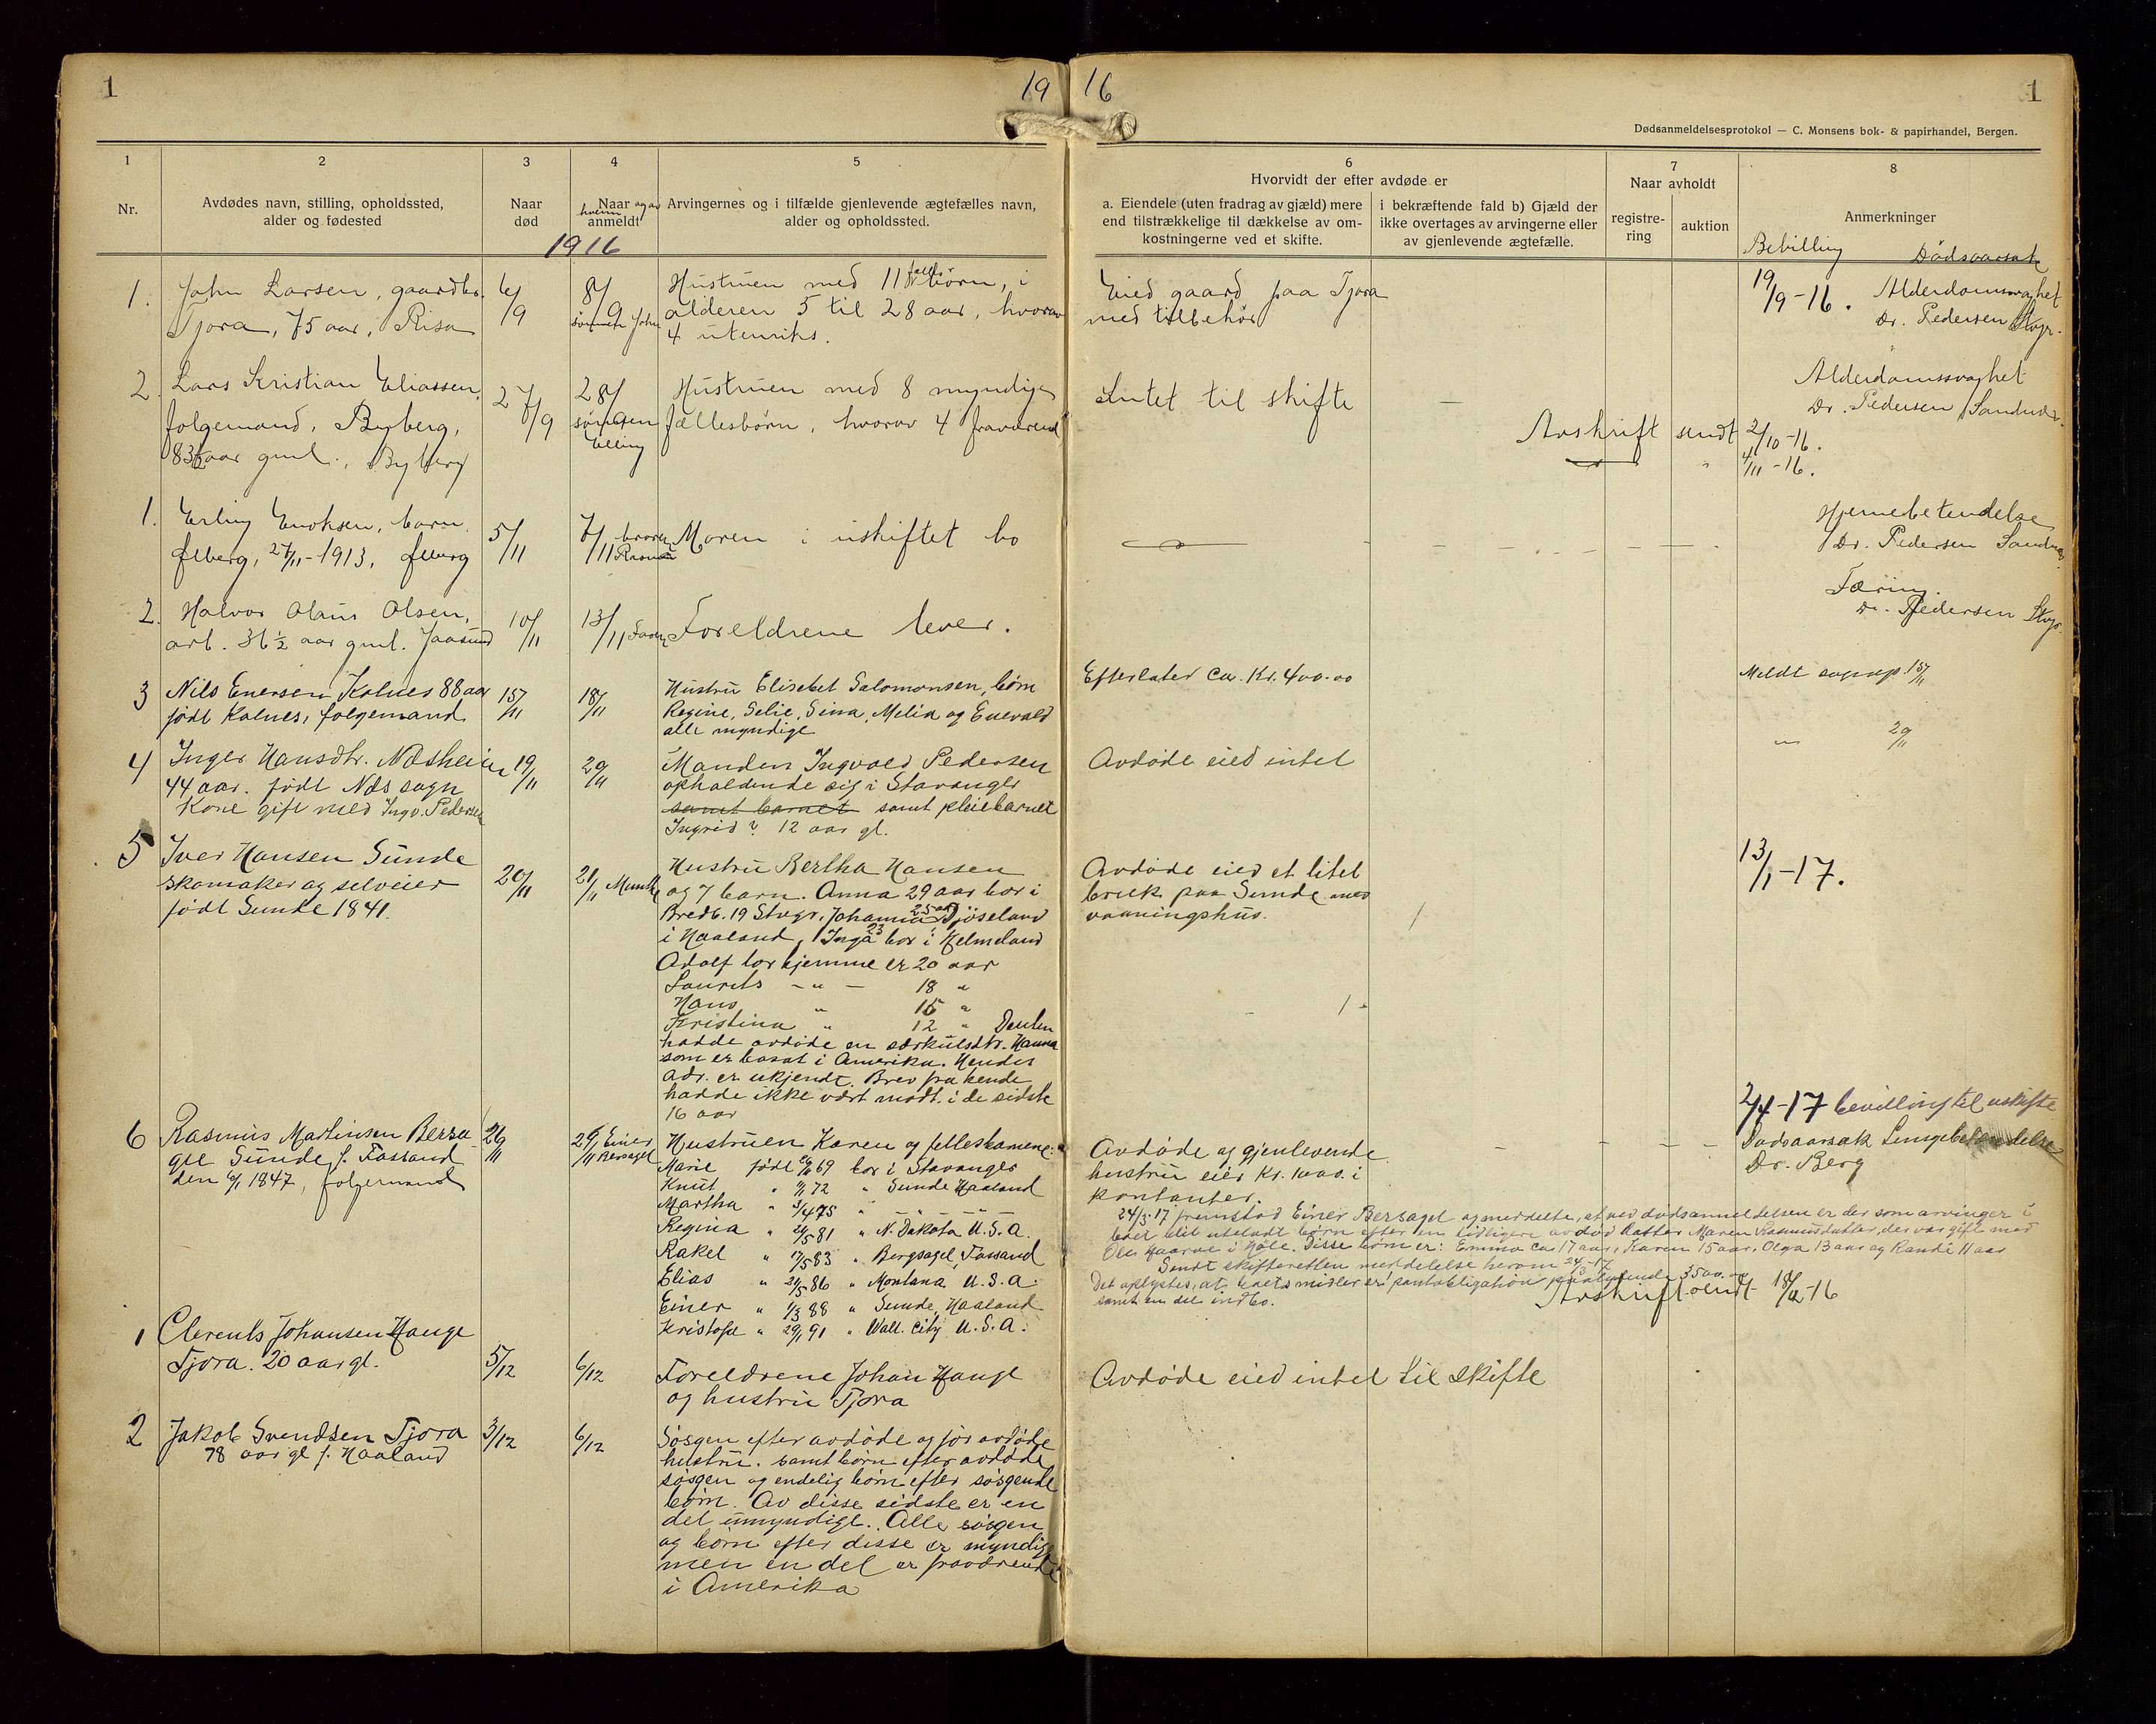 1
19
16
1
Dødsanmeldelsesprotokol — C. Monsens bok- & papirhandel, Bergen.
1
2
3
4
5
6
7
8
Nr.
Avdødes navn, stilling, opholdssted,
alder og fødested
Naar
død
Naar og av
hvem
anmeldt
Arvingernes og i tilfælde gjenlevende ægtefælles navn,
alder og opholdssted.
Hvorvidt der efter avdøde er
a. Eiendele (uten fradrag av gjæld) mere
end tilstrækkelige til dækkelse av om-
kostningerne ved et skifte.
i bekræftende fald b) Gjæld der
ikke overtages av arvingerne eller
av gjenlevende ægtefælle.
Naar avholdt
registre-
ring
auktion
Anmerkninger
Bevilling
Dødsaarsak
1916
1.
John Larsen, gaardbr.
Tjora, 75 aar, Risa
6/9
8/9
sønnen John
Hustruen med 11 fælles børn, i
alderen 5 til 28 aar, hvorav
4 utenriks.
Eied gaard paa Tjora
med tilbehør
19/9-16.
Alderdomssvaghet
Dr. Pedersen Stvgr.
2.
Lars Kristian Eliassen,
folgemand, Byberg,
83 aar gml., Byberg
27/9
28/9
sønnen
Elling
Hustruen med 8 myndige
fællesbørn, hvorav 4 fraværend
Intet til skifte
Alderdomssvaghet
Dr. Pedersen Sandnes.
Avskrift sendt 2/10-16.
" 4/11-16.
1.
Erling Enoksen, barn
Ølberg, 27/11-1913, Ølberg
5/11
7/11 broren
Rasmus
Moren i uskiftet bo
Hjernebetendelse
Dr. Pedersen Sandnes
2.
Halvor Olaus Olsen,
arb. 36 ½ aar gml. Jaasund
10/11
13/11 Faren
Foreldrene lever.
Tæring.
Dr. Pedersen Stvgr.
3
Nils Enersen Kolnes 88 aar
født Kolnes, folgemand
15/11
18/11
Hustru Elisebet Salomonsen, børn
Regine, Selie, Sina, Melia og Enevald
alle myndige
Efterlater ca. Kr. 400.00
Meldt sognepr. 15/11
4
Inger Hansdtr. Næsheim
44 aar. født Næs sogn
Kone gift med Ingv. Pedersen
19/11
29/11
Manden Ingvald Pedersen
opholdende sig i Stavanger
samt barnet samt pleiebarnet
Ingrid ? 12 aar gl.
Avdøde eied intet
" 29/11
5
Iver Hansen Sunde
skomaker og selveier
født Sunde 1841.
20/11
21/11
Hustru Bertha Hansen
og 7 barn. Anna 29 aar bor i
Bredb. 19 Stvgr., Johanna 25 aar Djöseland
i Haaland, Inga 23 bor i Helmeland
Adolf bor hjemme er 20 aar
Laurits - " - 18 "
Hans " 15 "
Kristina " 12 " Desuten
hadde avdøde en særkulsdtr. Hanna
som er bosat i Amerika. Hendes
adr. er ukjendt. Brev fra hende
hadde ikke vært modt. i de sidste
16 aar
Avdøde eied et litet
bruk paa Sunde med
vaaningshus.
13/1-17.
6
Rasmus Martinsen Bersa-
gel Sunde f. Fossand
den 6/1 1847, folgemand
26/11
29/11 Einer
Bersagel
Hustruen Karen og fellesbarnene:
Marie født 69 bor i Stavanger
Knut " 72 " Sunde Haaland
Martha " 3/4 75 " - " -
Regina " 24/5 81 " N. Dakota U.S.A.
Rakel " 17/5 83 " Bergsagel, Fossand
Elias " 24/5 86 " Montana U.S.A.
Einer " 1/3 88 " Sunde, Haaland
Kristofa " 29/1 91 " Wall. City U.S.A.
Avdøde og gjenlevende
hustru eier Kr. 1000. i
kontanter.
2/4-17 bevilling til uskifte
Dødsaarsak Lungebetændelse
Dr. Berg
24/3-17 fremstod Einer Bersagel og meddelte, at ved dødsanmeldelsen er der som arvinger i
boet blit utelatt børn efter en tidligere avdød datter Maren Rasmusdatter, der var gift med
Ole Haarve i Høle. Disse børn er: Emma ca 17 aar, Karen 15 aar, Olga 13 aar og Randi 11 aar
Sendt skifteretten meddelelse herom 24/3-17
Det oplystes, at boets midler er pantobligation paalydende 3500.00
samt en del indbo.
Avskrift sendt 18/12-16
1
Clements Johansen Hauge
Tjora. 20 aar gl.
5/12
6/12
Foreldrene Johan Hauge
og hustru Tjora
Avdøde eied intet til skifte
2
Jakob Svendsen Tjora
78 aar gl f. Haaland
3/12
6/12
Søsgen efter avdøde og for avdøde
hustru. samt børn efter avdøde
søsgen og endelig børn efter søsgende
børn. Av disse sidste er en
del umyndige. Alle søsgen
og børn efter disse er myndige
men en del er fraværende
i Amerika